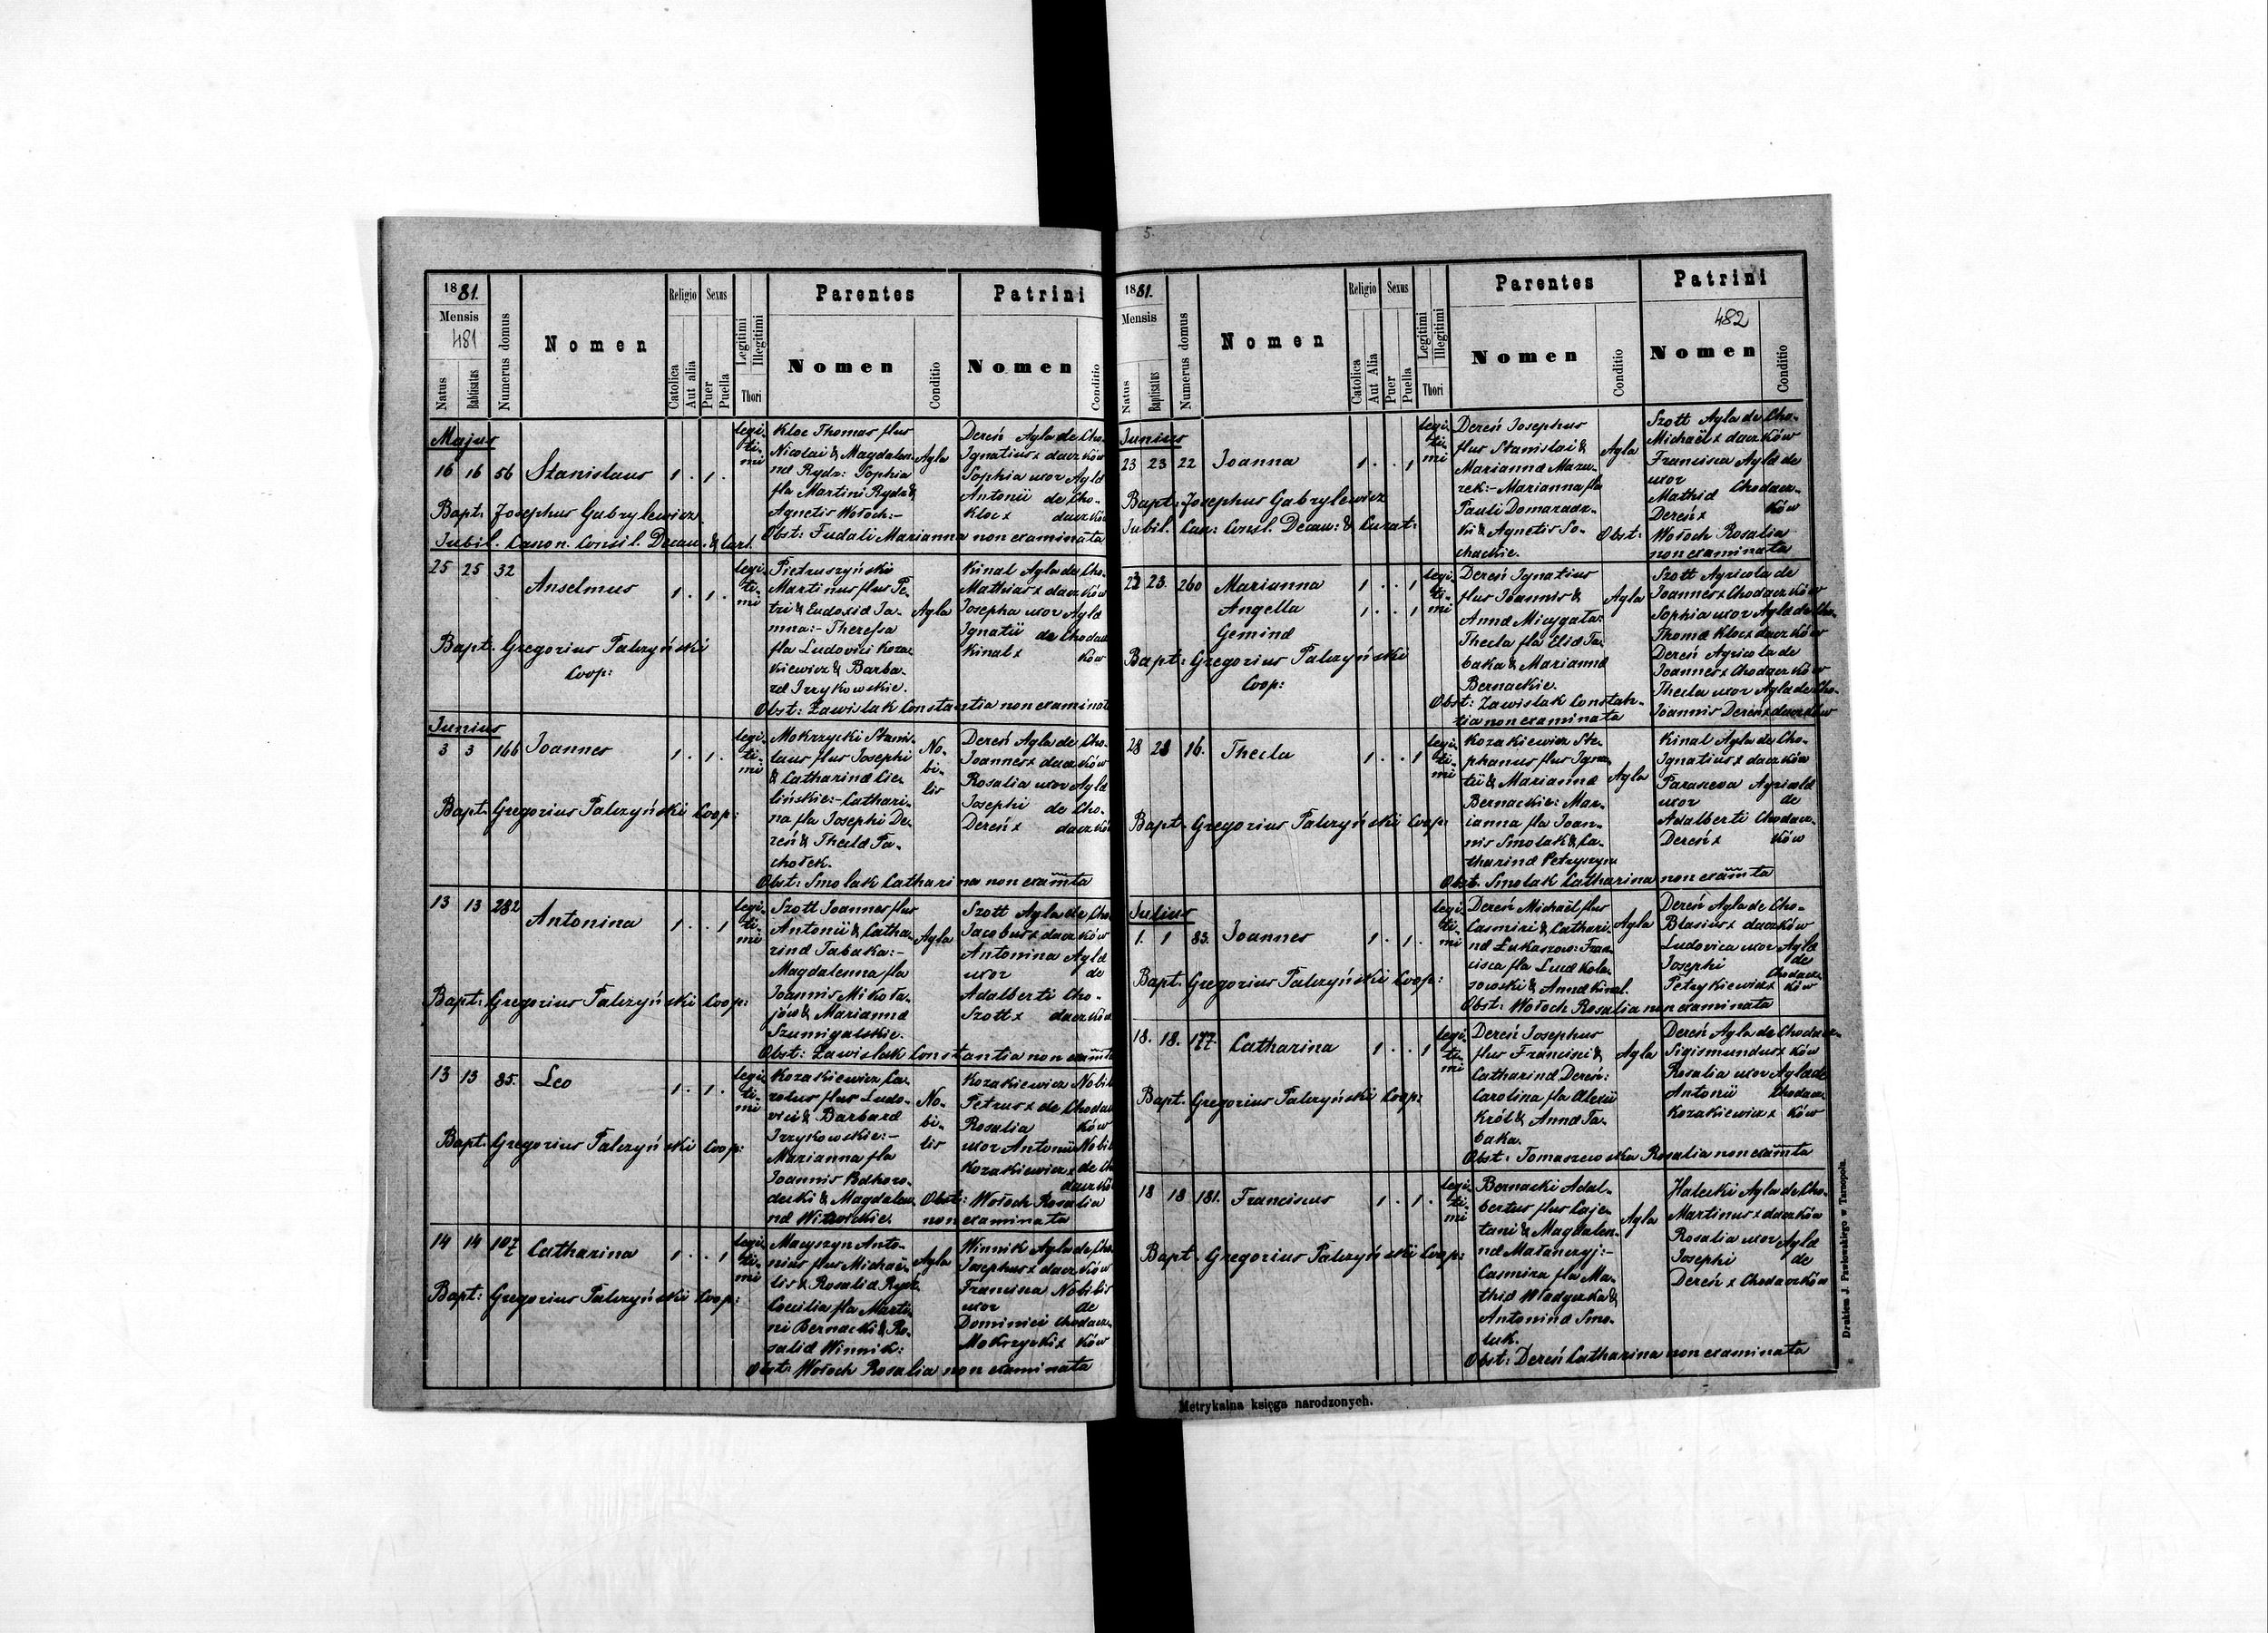 1881.
Mensis
481
Natus
Babtisatus
Numerus domus
Nomen
Religio
Catolica
Aut alia
Sexus
Puer
Puella
Legitimi
Illegitimi
Thori
Parentes
Nomen
Conditio
Patrini
Nomen
Conditio
Majus
16 16 56 Stanislaus 1 . 1 .
legi-
ti-
mi
Kloc Thomas flus
Nicolai & Magdale-
na Rydz: Sophia
fla Martini Rydz &
Agnetis Wołoch:-
Agla
Dereń Agla de Cho-
Ignatius x daczków
Sophia uxor Agla
Antonii de Cho-
Kloc x daczków
Bapt: Josephus Gabrylewicz
Jubil. Canon. Consil. Decan. & Curt.
Obst: Fudali Marianna non examinata
25 25 32
Anselmus 1 . 1 .
legi-
ti-
mi
Pietruszyński
Martinus flus Pe-
tri & Eudoxia Ja-
mna:- Theressa
fla Ludovici Koza-
kiewicz & Barba-
ra Irzykowskie.
Agla
Kinal Agla de Cho-
Mathias x daczków
Josepha uxor Agla
Ignatii de Chodacz
Kinal x ków
Bapt: Gregorius Palczyński
Coop:
Obst: Zawislak Constantia non examinat
Junius
3 3 166 Joannes 1 . 1 .
legi-
ti-
mi
Mokrzycki Stanis-
laus flus Josephi
& Catharina Cie-
lińskie:- Cathari-
na fla Josephi De-
reń & Thecla Pa-
chołek.
No-
bi-
lis
Dereń Agla de Cho-
Joannes x daczków
Rosalia uxor Agla
Josephi de Cho-
Dereń x daczków
Bapt: Gregorius Palczyński Coop:
Obst: Smolak Catharina non examta
13 13 282
Antonina 1 . . 1
legi-
ti-
mi
Szott Joannes flus
Antonii & Catha-
rina Tabaka:-
Magdalenna fla
Joannis Mikoła-
jów & Marianna
Szumigalskie.
Agla
Szott Agla de Cho
Jacobus x daczków
Antonina Agla
uxor de
Adalberti Cho-
Szott x daczków
Bapt: Gregorius Palczyński Coop:
Obst: Zawislak Constantia non examta
13 13 85. Leo 1 . 1 .
legi-
ti-
mi
Kozakiewicz Ca-
rolus flus Ludo-
vici & Barbara
Irzykowskie:-
Marianna fla
Joannis Podhoro-
decki & Magdale-
na Witwickie.
No-
bi-
lis
Kozakiewicz Nobilis
Petrus x de Chodacz
Rosalia ków
uxor Antonii Nobilis
Kozakiewicz x de Cho
daczków
Bapt: Gregorius Palczyński Coop:
Obst: Wołoch Rosalia
non examinata
14 14 107 Catharina 1 . . 1
legi-
ti-
mi
Macyszyn Anto-
nius flus Michae-
lis & Rosalia Rydz:
Coecilia fla Marti-
ni Bernacki & Ro-
salia Winnik:
Agla
Winnik Agla de Cho
Josephus x daczków
Francisca Nobilis
uxor de
Dominici Chodacz-
Mokrzycki x ków
Bapt: Gregorius Palczyński Coop:
Obst: Wołoch Rosalia non examinata
5.
1881.
Mensis
Natus
Baptisatus
Numerus domus
Nomen
Religio
Catolica
Aut Alia
Sexus
Puer
Puella
Legitimi
Illegitimi
Thori
Parentes
Nomen
Conditio
Patrini
482
Nomen
Conditio
Junius
23 23 22 Joanna 1 . . 1
legi-
ti-
mi
Dereń Josephus
flus Stanislai &
Marianna Mazu-
rek:- Marianna fla
Pauli Domaradz-
ki & Agnetis So-
chackie.
Agla
Szott Agla de Cho-
Michaël x daczków
Francisca Agla de
uxor
Mathia Chodacz-
Dereń x ków
Bapt: Josephus Gabrylewicz
Jubil. Can: Consil. Decan: & Curat:
Obst: Wołoch Rosalia
non examinata
23. 260 Marianna 1 . . 1
Angella 1 . . 1
Gemina
legi-
ti-
mi
Dereń Ignatius
flus Joannis &
Anna Micygała:
Thecla fla Elia Ta-
baka & Marianna
Bernackie.
Agla
Szott Agricola de
Joannes x Chodaczków
Sophia uxor Agla de Cho-
Thoma Kloc x daczków
Dereń Agricola de
Joannes x Chodaczków
Thecla uxor Agla de Cho-
Joannis Dereń x daczków
Bapt: Gregorius Palczyński
Coop:
Obst: Zawislak Constan-
tia non examinata
28 28 16. Thecla 1 . . 1
legi-
ti-
mi
Kozakiewicz Ste-
phanus flus Igna-
tii & Marianna
Bernackie: Mar-
ianna fla Joan-
nis Smolak & Ca-
tharina Petryszyn
Agla
Kinal Agla de Cho-
Ignatius x daczków
Parascewa Agricola
uxor de
Adalberti Chodacz-
Dereń x ków
Bapt: Gregorius Palczyński Coop:
Obst: Smolak Catharina non examta
Julius
1. 1 83. Joannes 1 . 1 .
legi-
ti-
mi
Dereń Michaël flus
Casmiri & Cathari-
na Łukaszow: Fran-
cisca fla Luca Kola-
sowski & Anna Kinal.
Agla
Dereń Agla de Cho-
Blasius x daczków
Ludovica uxor Agla
Josephi de
Petrykiewicz x Chodacz-
ków
Bapt: Gregorius Palczyński Coop:
Obst: Wołoch Rosalia non examinata
18. 18. 177 Catharina 1 . . 1
legi-
ti-
mi
Dereń Josephus
flus Francisci &
Catharina Dereń:
Carolina fla Alexii
Król & Anna Ta-
baka.
Agla
Dereń Agla de Chodacz-
Sigismundus x ków
Rosalia uxor Agla de
Antonii Chodacz-
Kozakiewicz x ków
Bapt: Gregorius Palczyński Coop:
Obst: Tomaszewska Rosalia non examta
18 18 181. Franciscus 1 . 1 .
legi-
ti-
mi
Bernacki Adal-
bertus flus Caje-
tani & Magdalen-
na Małanczyj:-
Casmira fla Ma-
thia Władyczka &
Antonina Smo-
luk.
Agla
Halecki Agla de Cho-
Martinus x daczków
Rosalia uxor Agla
Josephi de
Dereń x Chodaczków
Bapt: Gregorius Palczyński Coop:
Obst: Dereń Catharina non examinata
Metrykalna księga narodzonych.
Drukiem J. Pawłowskiego w Tarnopolu.